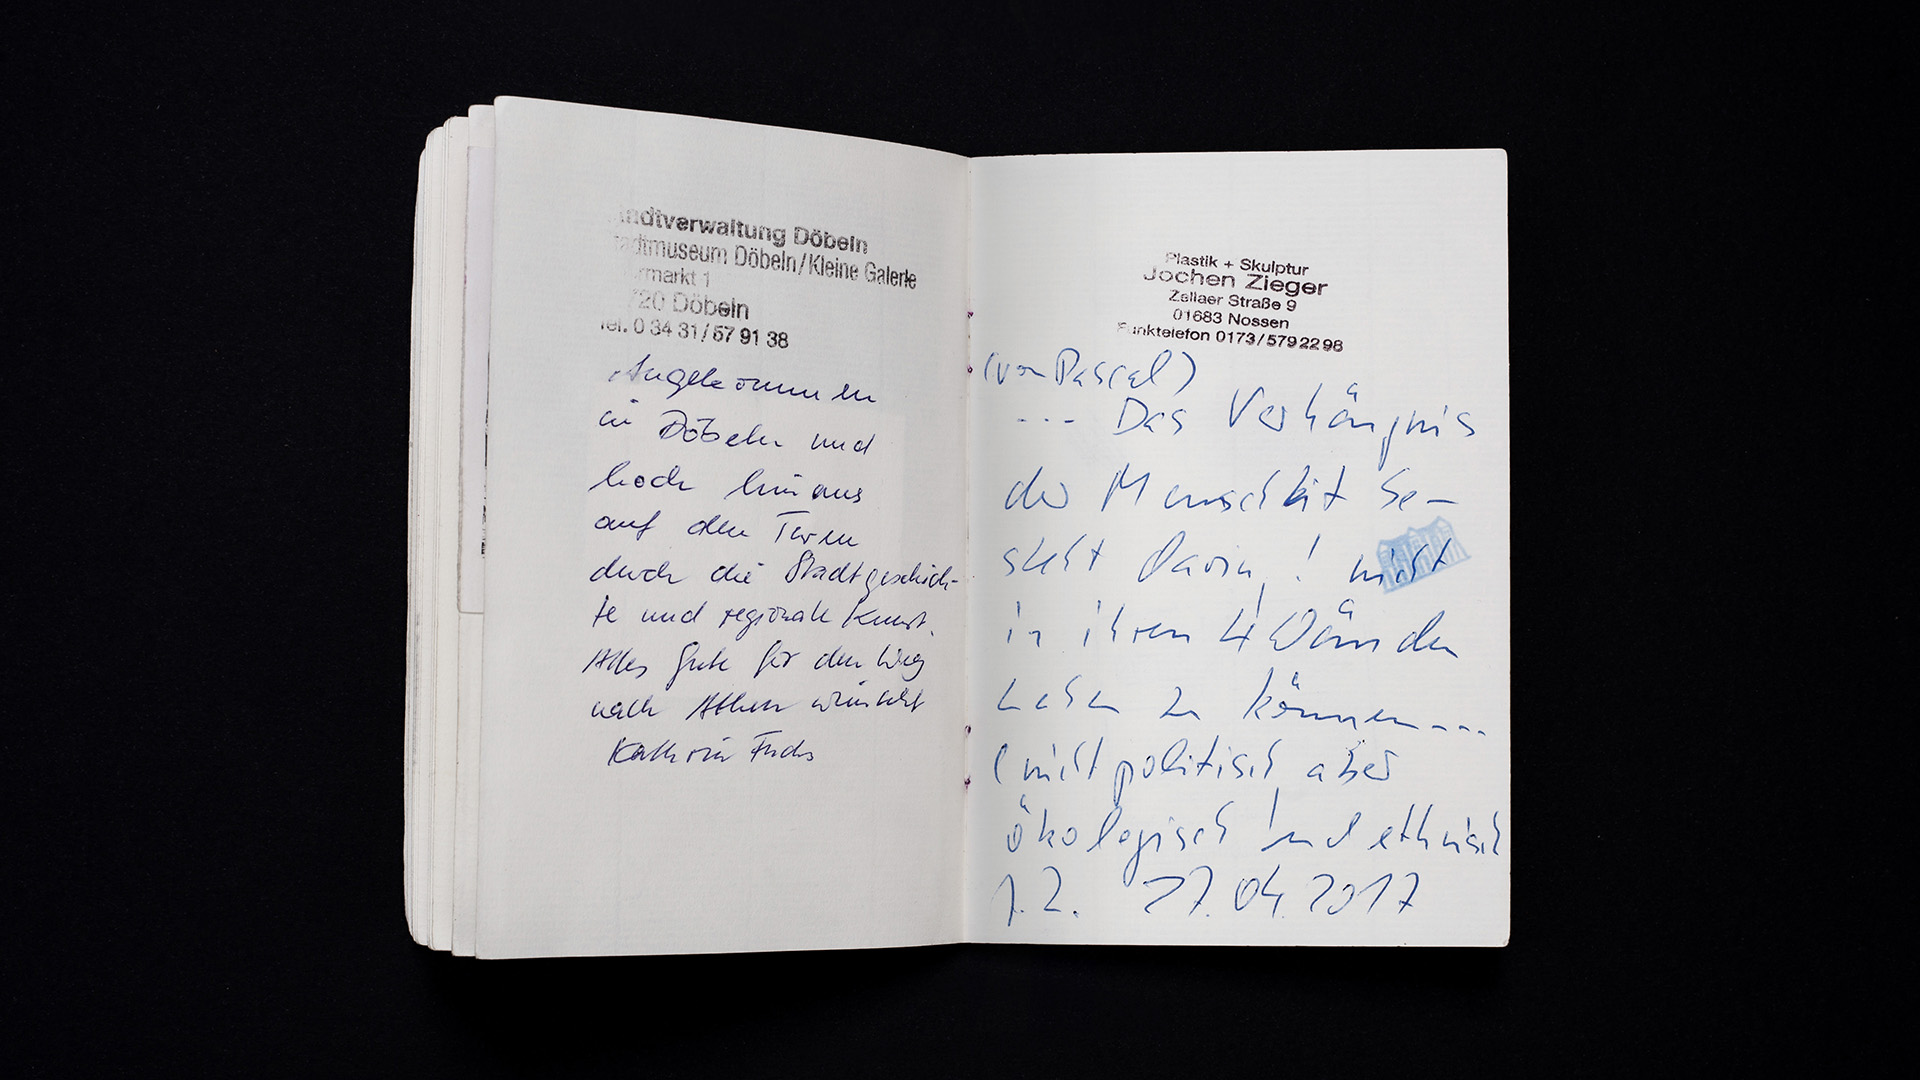 Stadtverwaltung Döbeln
Stadtmuseum Döbeln/Kleine Galerie
markt 1
720 Döbeln
Tel. 0 34 31/57 91 38
Angekommen
in Döbeln und
hoch hinaus
auf den Turm
durch die Stadtgeschich-
te und regionale Kunst.
Alles Gute für den Weg
nach Athen wünscht
Kathrin Fuchs
Plastik + Skulptur
Jochen Zieger
Zellaer Straße 9
01683 Nossen
Funktelefon 0173/5792298
(von Pascal)
--- Das Verhängnis
der Menschheit be-
steht darin, ! nicht
in ihren 4 Wänden
leben zu können---
(nicht politisch aber
ökologisch und ethnisch
J.Z. 27.04.2017